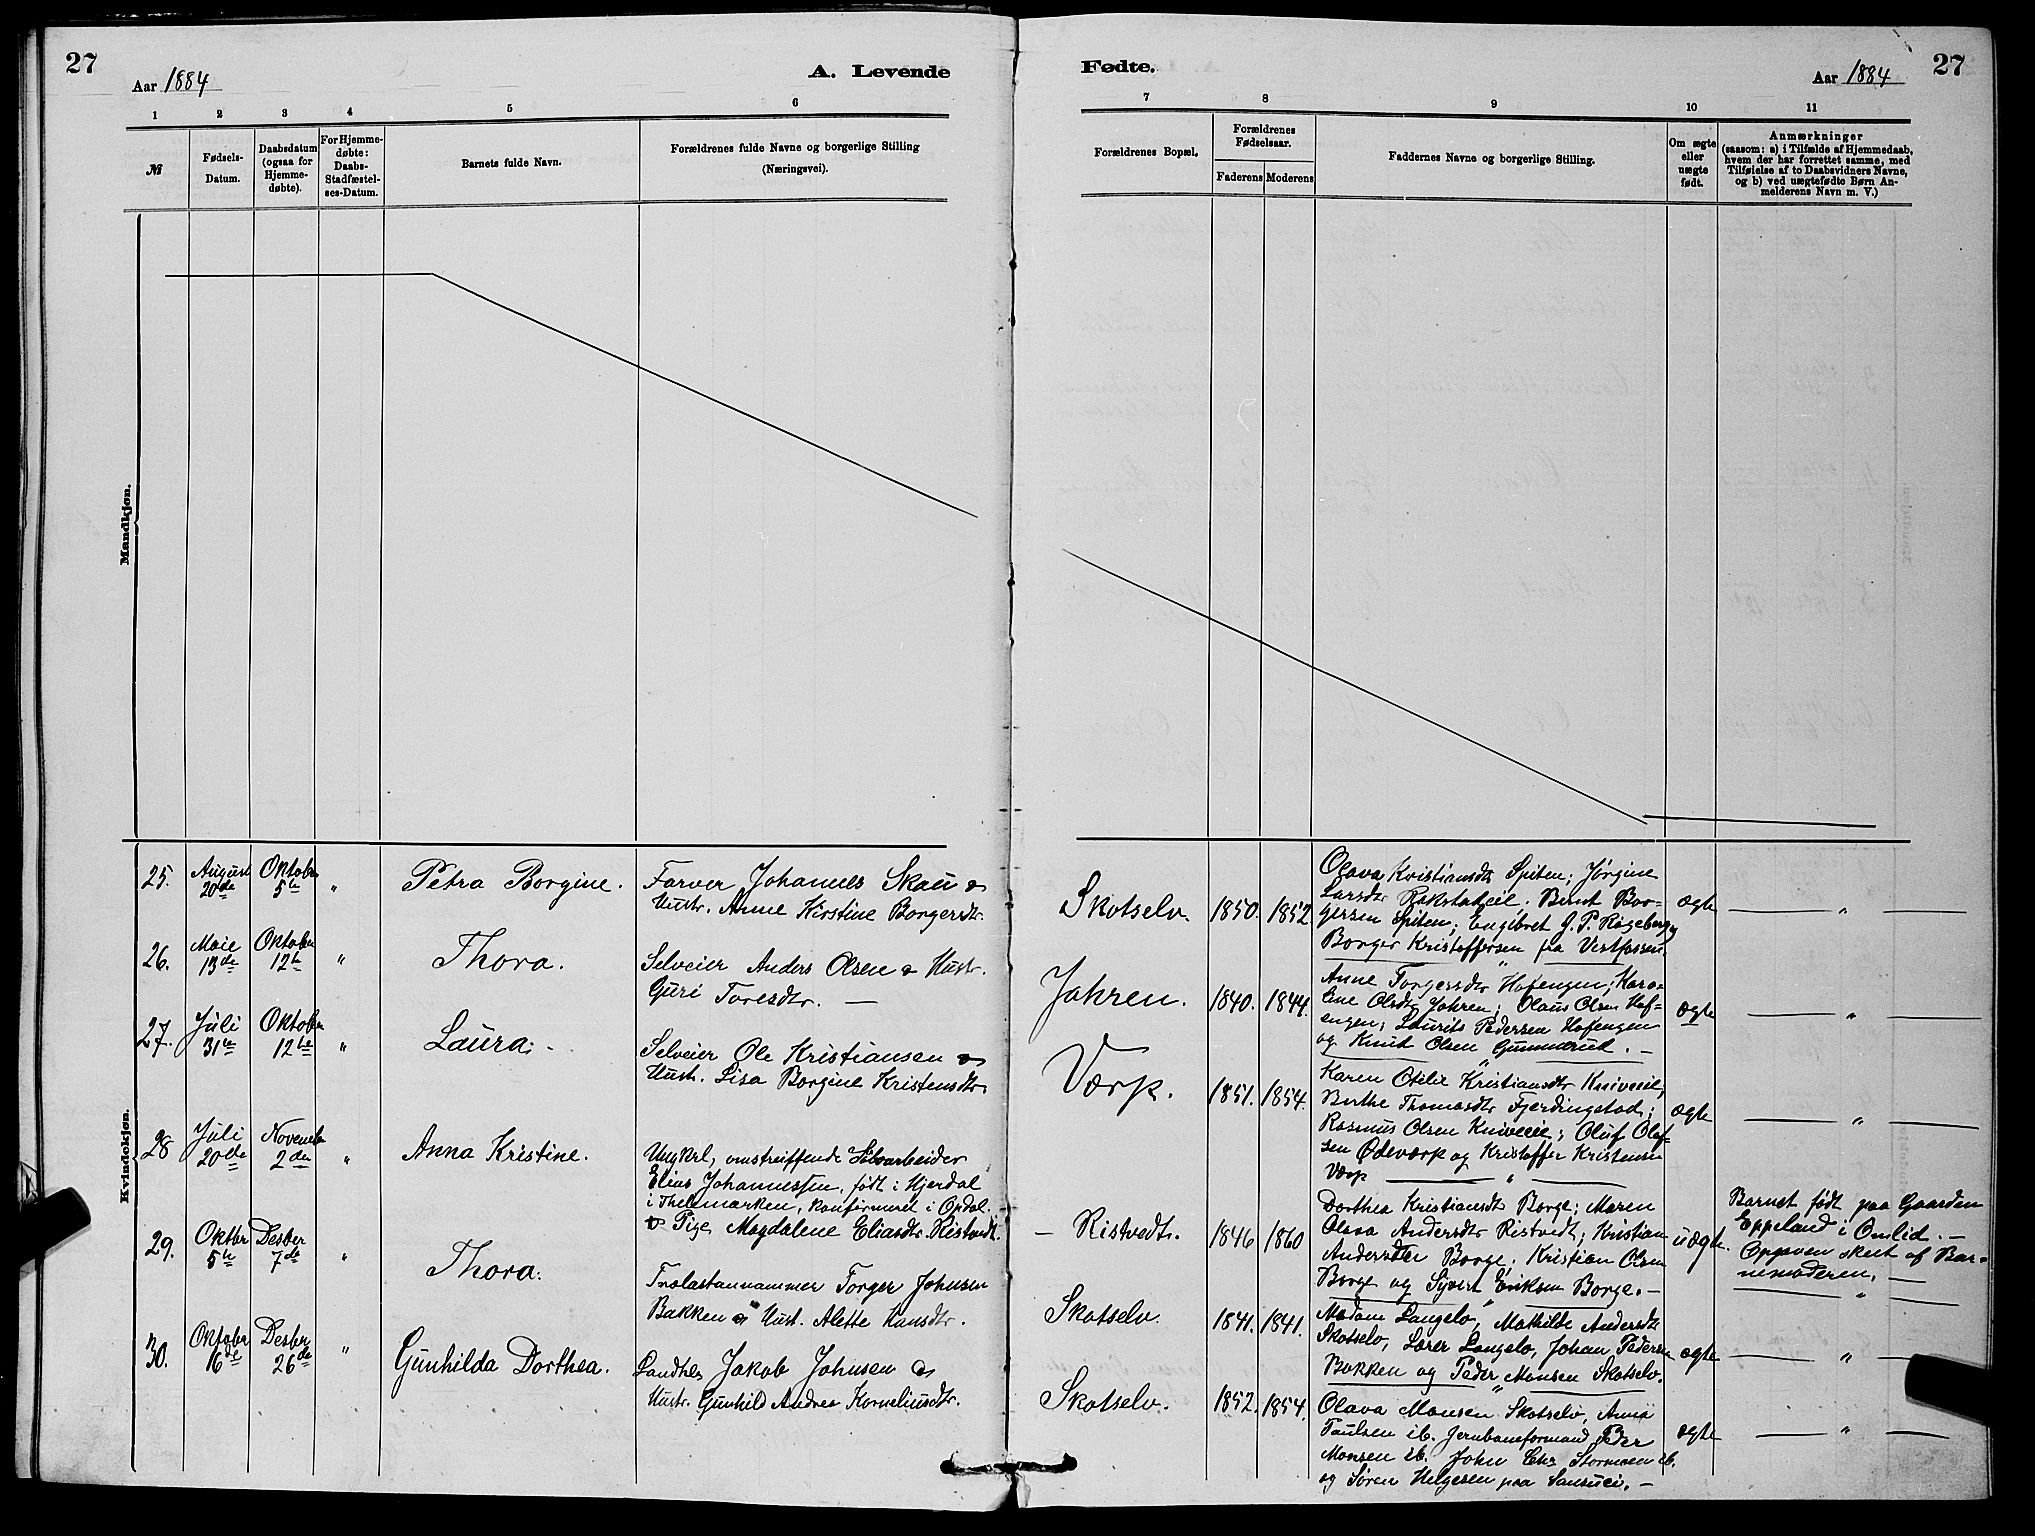 27
Aar 1884
A. Levende
1 2 3 4 5 6
№
Fødsels-
Datum.
Daabsdatum
(ogsaa for
Hjemme-
døbte).
For Hjemme-
døbte:
Daabs-
Stadfæstel-
ses-Datum.
Barnets fulde Navn.
Forældrenes fulde Navne og borgerlige Stilling
(Næringsvei).
Mandkjøn.
Kvindekjøn.
25. August 20de Oktober 5te " Petra Borgine. Farver Johannes Skau &
Hustr. Anne Kirstine Borgersdtr.
26. Maie 13de Oktober 12te " Thora. Selveier Anders Olsen & Hustr.
Guri Toresdtr. —
27. Juli 31te Oktober 12te " Laura. Selveier Ole Kristiansen &
Hust. Lisa Borgine Kristensdtr.
28 Juli 20de Novemb 2den " Anna Kristine. Ungkrl, omstreiffende Sølvarbeider
Elias Johannessen, født i Hjerdal
i Thelemarken, konfirmeret i Opdal.
& Pige Magdalene Eliasdtr. Ristvedt.
29. Oktbr 5te Desber 7de " Thora. Trælastannammer Torger Johnsen
Bakken & Hust. Alette Hansdtr.
30. Oktobr 16de Desbr 26de " Gunhilda Dorthea. Landhdl Jakob Johnsen &
Hustr. Gunhild Andrea Korneliusdtr.
Fødte.
Aar 1884
27
7 8 9 10 11
Forældrenes Bopæl.
Forældrenes
Fødselsaar.
Faderens Moderens
Faddernes Navne og borgerlige Stilling.
Om ægte
eller
uægte
født.
Anmærkninger
(saasom: a) i Tilfælde af Hjemmedaab,
hvem der har forrettet samme, med
Tilføielse af to Daabsvidners Navne,
og b) ved uægtefødte Børn An-
melderens Navn m. V.)
Skotselv. 1850. 1852 Olava Kristiansdtr Spiten; Jørgine
Larsdtr Bernt Bor- ægte "
gersen Spiten; Engebret G. P. Rogeberg
Borger Kristoffersen fra Vestfossen.
Jahren. 1840. 1844. Anne Torgersdtr Hofengen; Karo-
line Olsdtr Jahren; Olaus Olsen Hof- ægte "
engen; Laurits Pedersen Hofengen
og Knud Olsen Gunnerud. —
Værp. 1851. 1854. Karen Otelie Kristiansdtr Kniveeie;
Berthe Thomasdtr Fjerdingstad; ægte "
Rasmus Olsen Kniveeie; Oluf Olaf-
sen Ødeværp og Kristoffer Kristensen
Værp "
— Ristvedt. 1846 1860 Dorthea Kristiansdt Borge; Maren
Olava Andersdtr Ristvedt; Kristian uægte.
Andersen Borge; Kristian Olsen
Borge og Syvert Eriksen Borge. —
Barnet født paa Gaarden
Eppeland i Omlid. —
Opgaven skeet af Bar-
nemoderen. —
"
Skotselv. 1841. 1841. Madam Langelo, Mathilde Andersdtr
Skotselv, Lærer Langelo, Johan Pedersen ægte "
Bakken og Peder Monsen Skotselv.
Skotselv. 1852. 1854. Olava Monsen Skotselv, Anna
Paulsen ib. Jernbaneformand Peder ægte "
Monsen ib. John Chr Stormoen ib.
og Søren Helgesen paa Sansuci. —